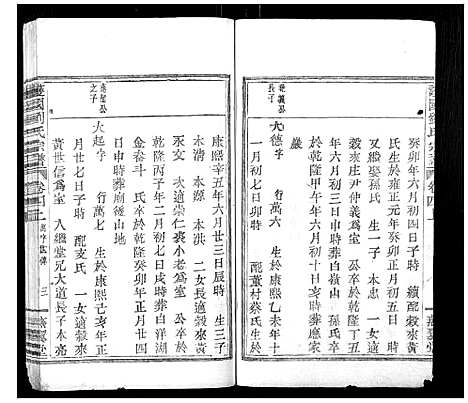 癸卯年六月初四日子時 續配
氏生於雍正元年癸卯正月初五日 時
又繼娶孫氏 生一子 本忠 一女適
穀來庄尹仲義爲室 公卒於乾隆丁丑
年六月初三日申時葬白嶺山 孫氏卒
於乾隆甲午年六月初十日亥時葬應家
山
長子
大德 字 行萬六 生於康熙乙未年十
一月初七日卯時 配董村蔡氏生於
康熙辛丑年六月廿三日辰時 生三子
本清 本源 本洪 二女長適穀來黃
永文 次適崇仁裘小老爲室 公卒於
乾隆丙子年二月初七日戌時葬白洋湖
金卷斗 氏卒於乾隆癸卯年正月廿四
日申時葬廟後山地
之子
大起 字 行萬七 生於康熙己亥年正
月廿七日子時 配支氏 一女適穀來
黃世信爲室 入繼堂兄大道長子本亮
卷四
三